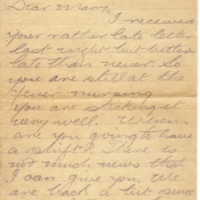 Dear Mary,
I received
your rather late letter
last night but better
late than never. So
you are still at the
nursing
You are sticking it
very well. When
are you going to have
a shift? There is
not much news that
I can give you. We
are back a bit since